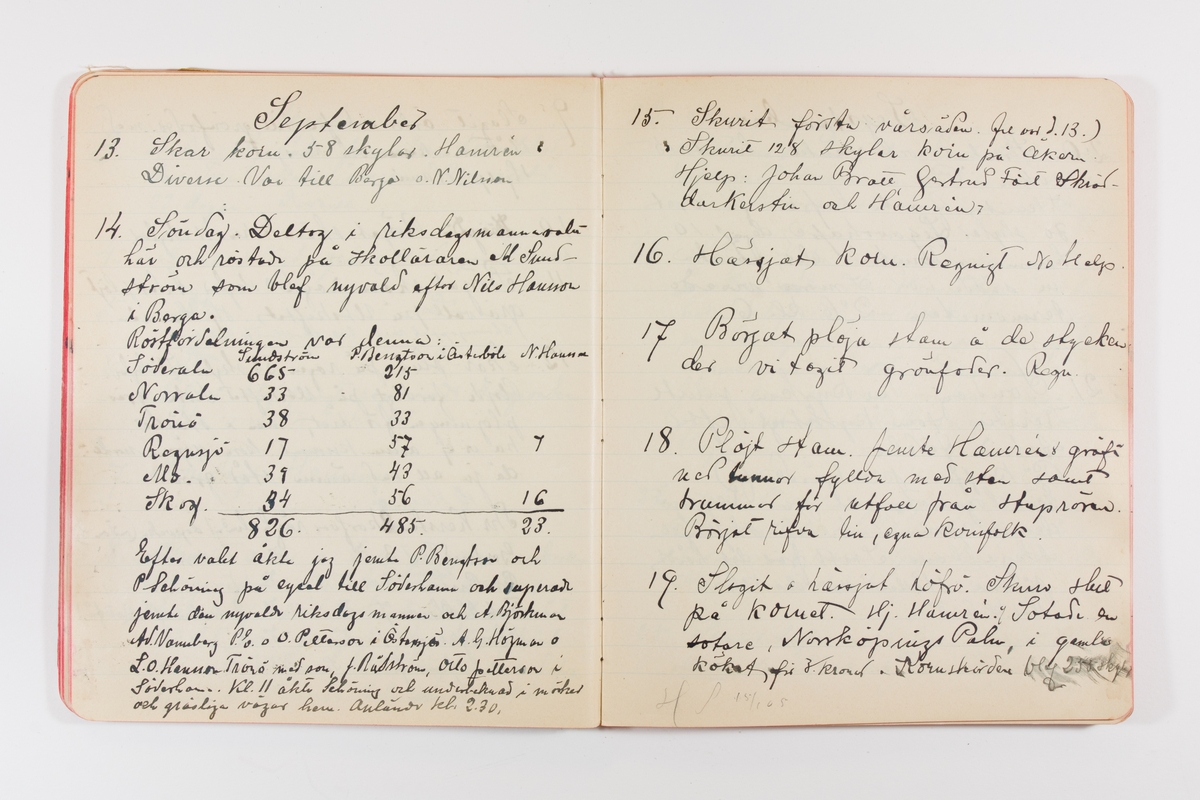 September
13. Skar korn. 58 skylar. Hamrén
Diverse. Var till Berga o. N. Nilsson
14. Söndag. Deltog i riksdagsmannavalet
här och röstade på skolläraren M Sund-
ström som blef nyvald efter Nils Hansson
i Berga.
Röstfördelningen var denna:
Sundström P. Bengtson i Österböle N. Hansson
Söderala 665 215
Norrala 33 81
Trönö 38 33
Regnsjö 17 57 7
Mo. 39 43
Skog. 34 56 16
826. 485. 23.
Efter valet åkte jag jemte P. Bengtson och
P. Schöning på cykel till Söderhamn och superade
jemte den nyvalde riksdagsmannen och A. Björkman
Ad. Vannberg P.E. o O. Pettersson i A. G. Höjman o
L. O. Hansson Trönö med son, J. Rådström, Otto petterson i
Söderhamn. Kl. 11 åkte Schöning och undertecknad i mörker
och gräsliga vägar hem. Anlände kl. 2.30.
15. Skurit första vårsäden. (fel var d. 13.)
Skurit 128 skylar korn på åkern.
Hjelp: Johan Bratt, Gertrud Färt Skräd-
darkerstin och Hamrén,
16. Hässjat korn. Regnigt No Help.
17 Börjat plöja stam å de stycken
der vi tagit grönfoder. Regn.
18. Plöjt stam. Jemte Hamrén gräft
ned tunnor fyllda med sten samt
trummor för utflöe från stuprören.
Börjat rifva lin, egna kvinfolk.
19. Slagit o hässjat höfrö. Skuro slut
på kornet. Hj. Hamrén. Sotade en
sotare, Norrköpings Palm, i gamla
köket för 3 kronor. Kornskörden blef 256 skylar
H S 15/1 05